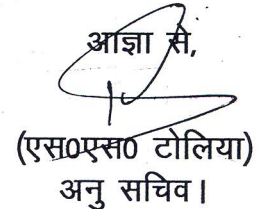 आज्ञा से,
(एस0एस0 टोलिया)
अनु सचिव।